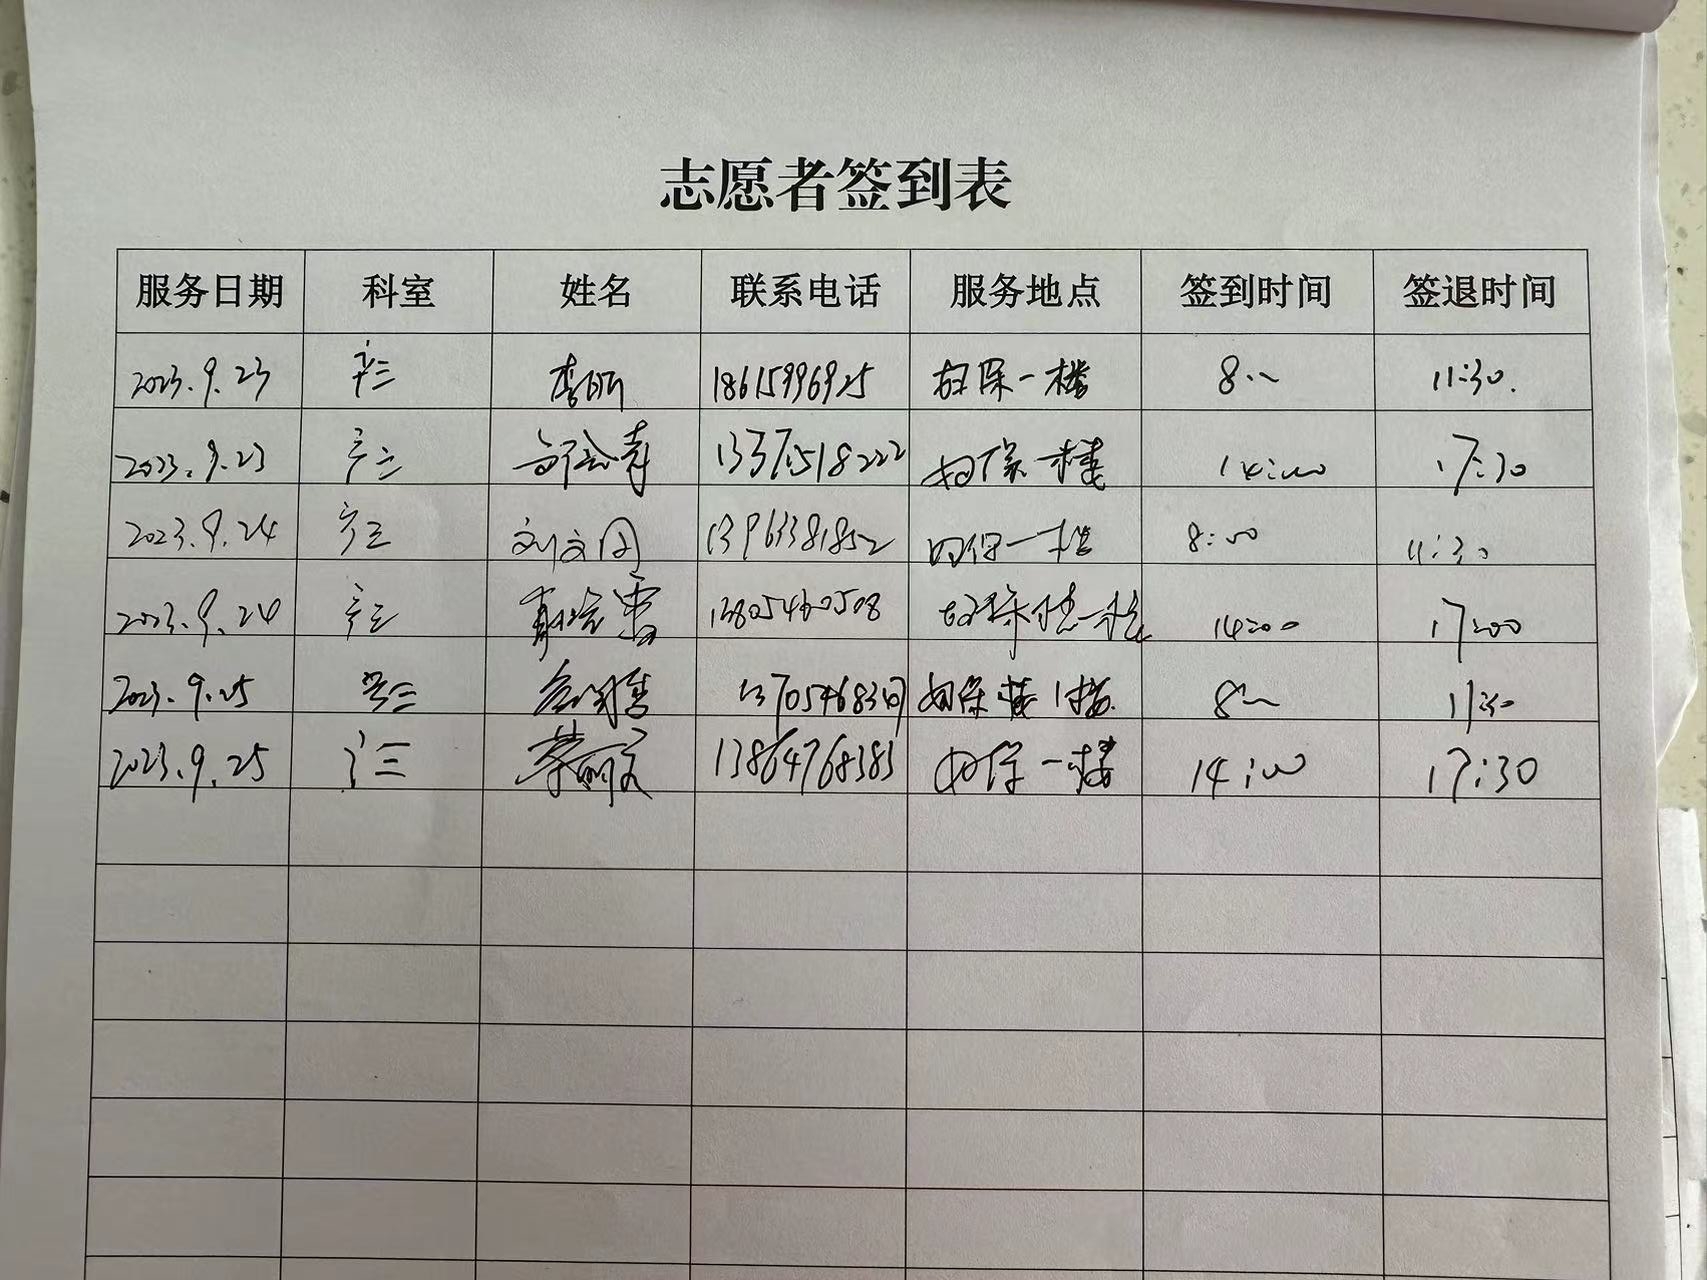 志愿者签到表
服务日期 科室 姓名 联系电话 服务地点 签到时间 签退时间
2023.9.23 产三 李丽 18615996925 妇保一楼 8:00 11:30.
2023.9.23 产三 13375518222 妇保一楼 14:00 17:30
2023.9.24 产三 刘文图 13963381852 妇保一楼 8:00 11:30
2023.9.24 产三 13805460508 妇保楼一楼 14:00 17:00
2023.9.25 产三 妇保楼1楼 8:00 11:30
2023.9.25 产三 13864768383 妇保一楼 14:00 17:30